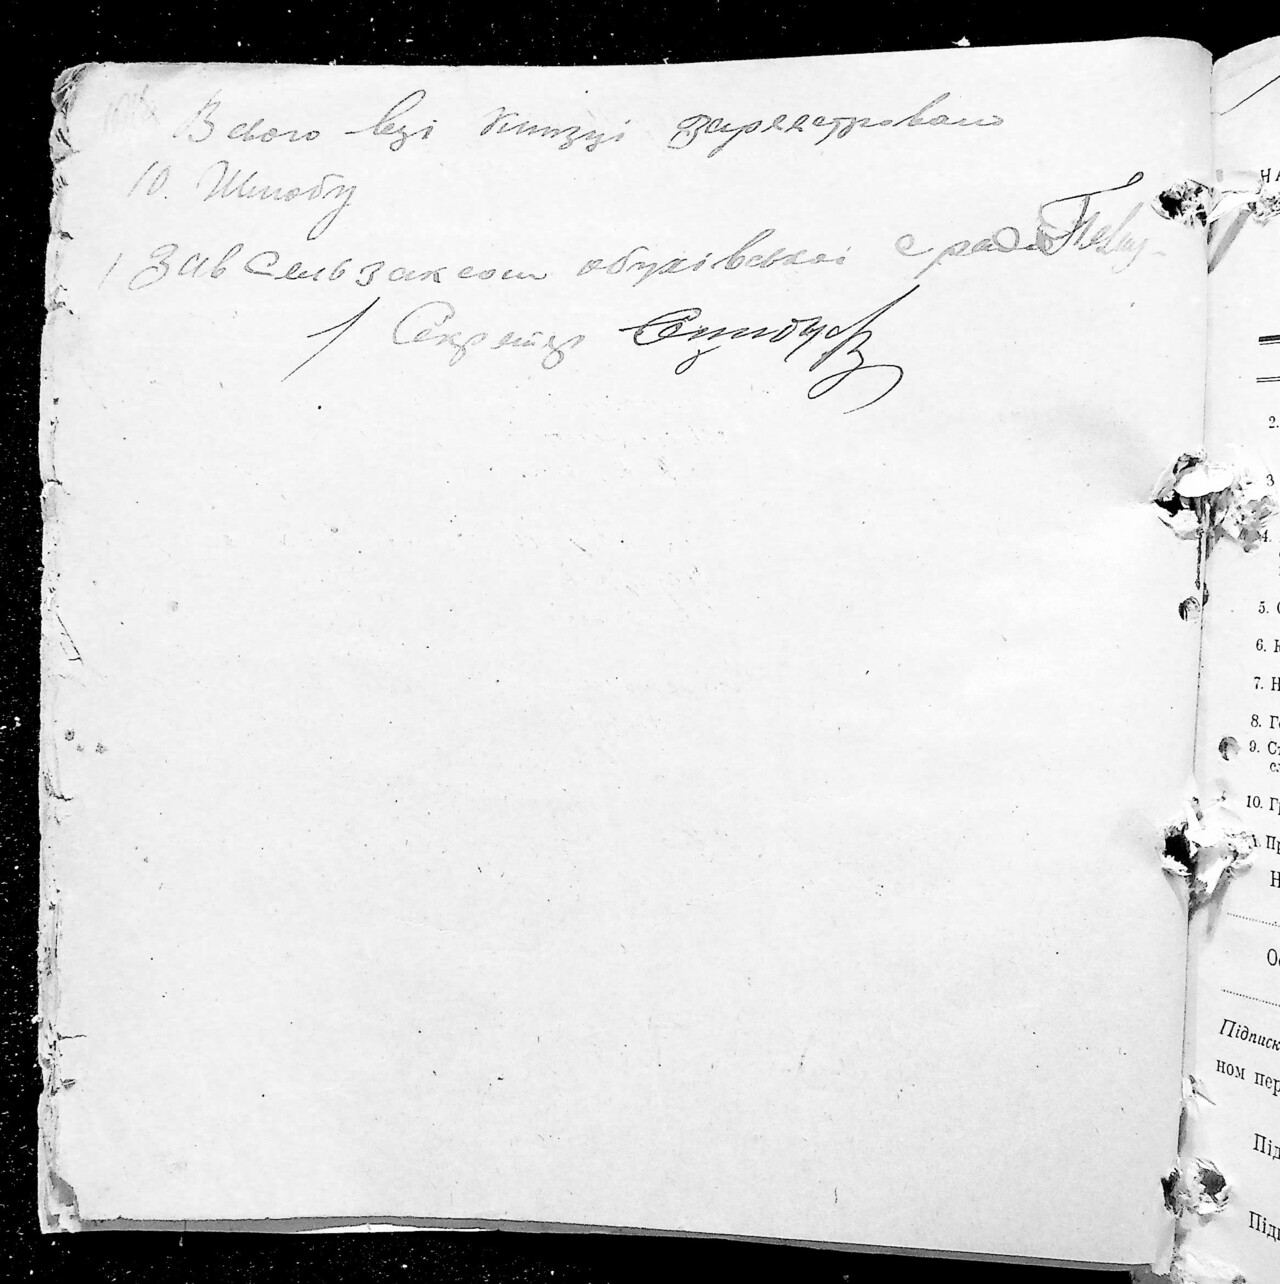 Всього вці книзці зареєстровано
10. Шлюбу
Зав Сельзагсом обухівської с ради
Секретар
НА
2.
3
4.
5. С
6. К
7. Н
8. Г
9. Ст
10. Гр
Пр
Н
Ос
Підписк
ном пер
Під
Підп